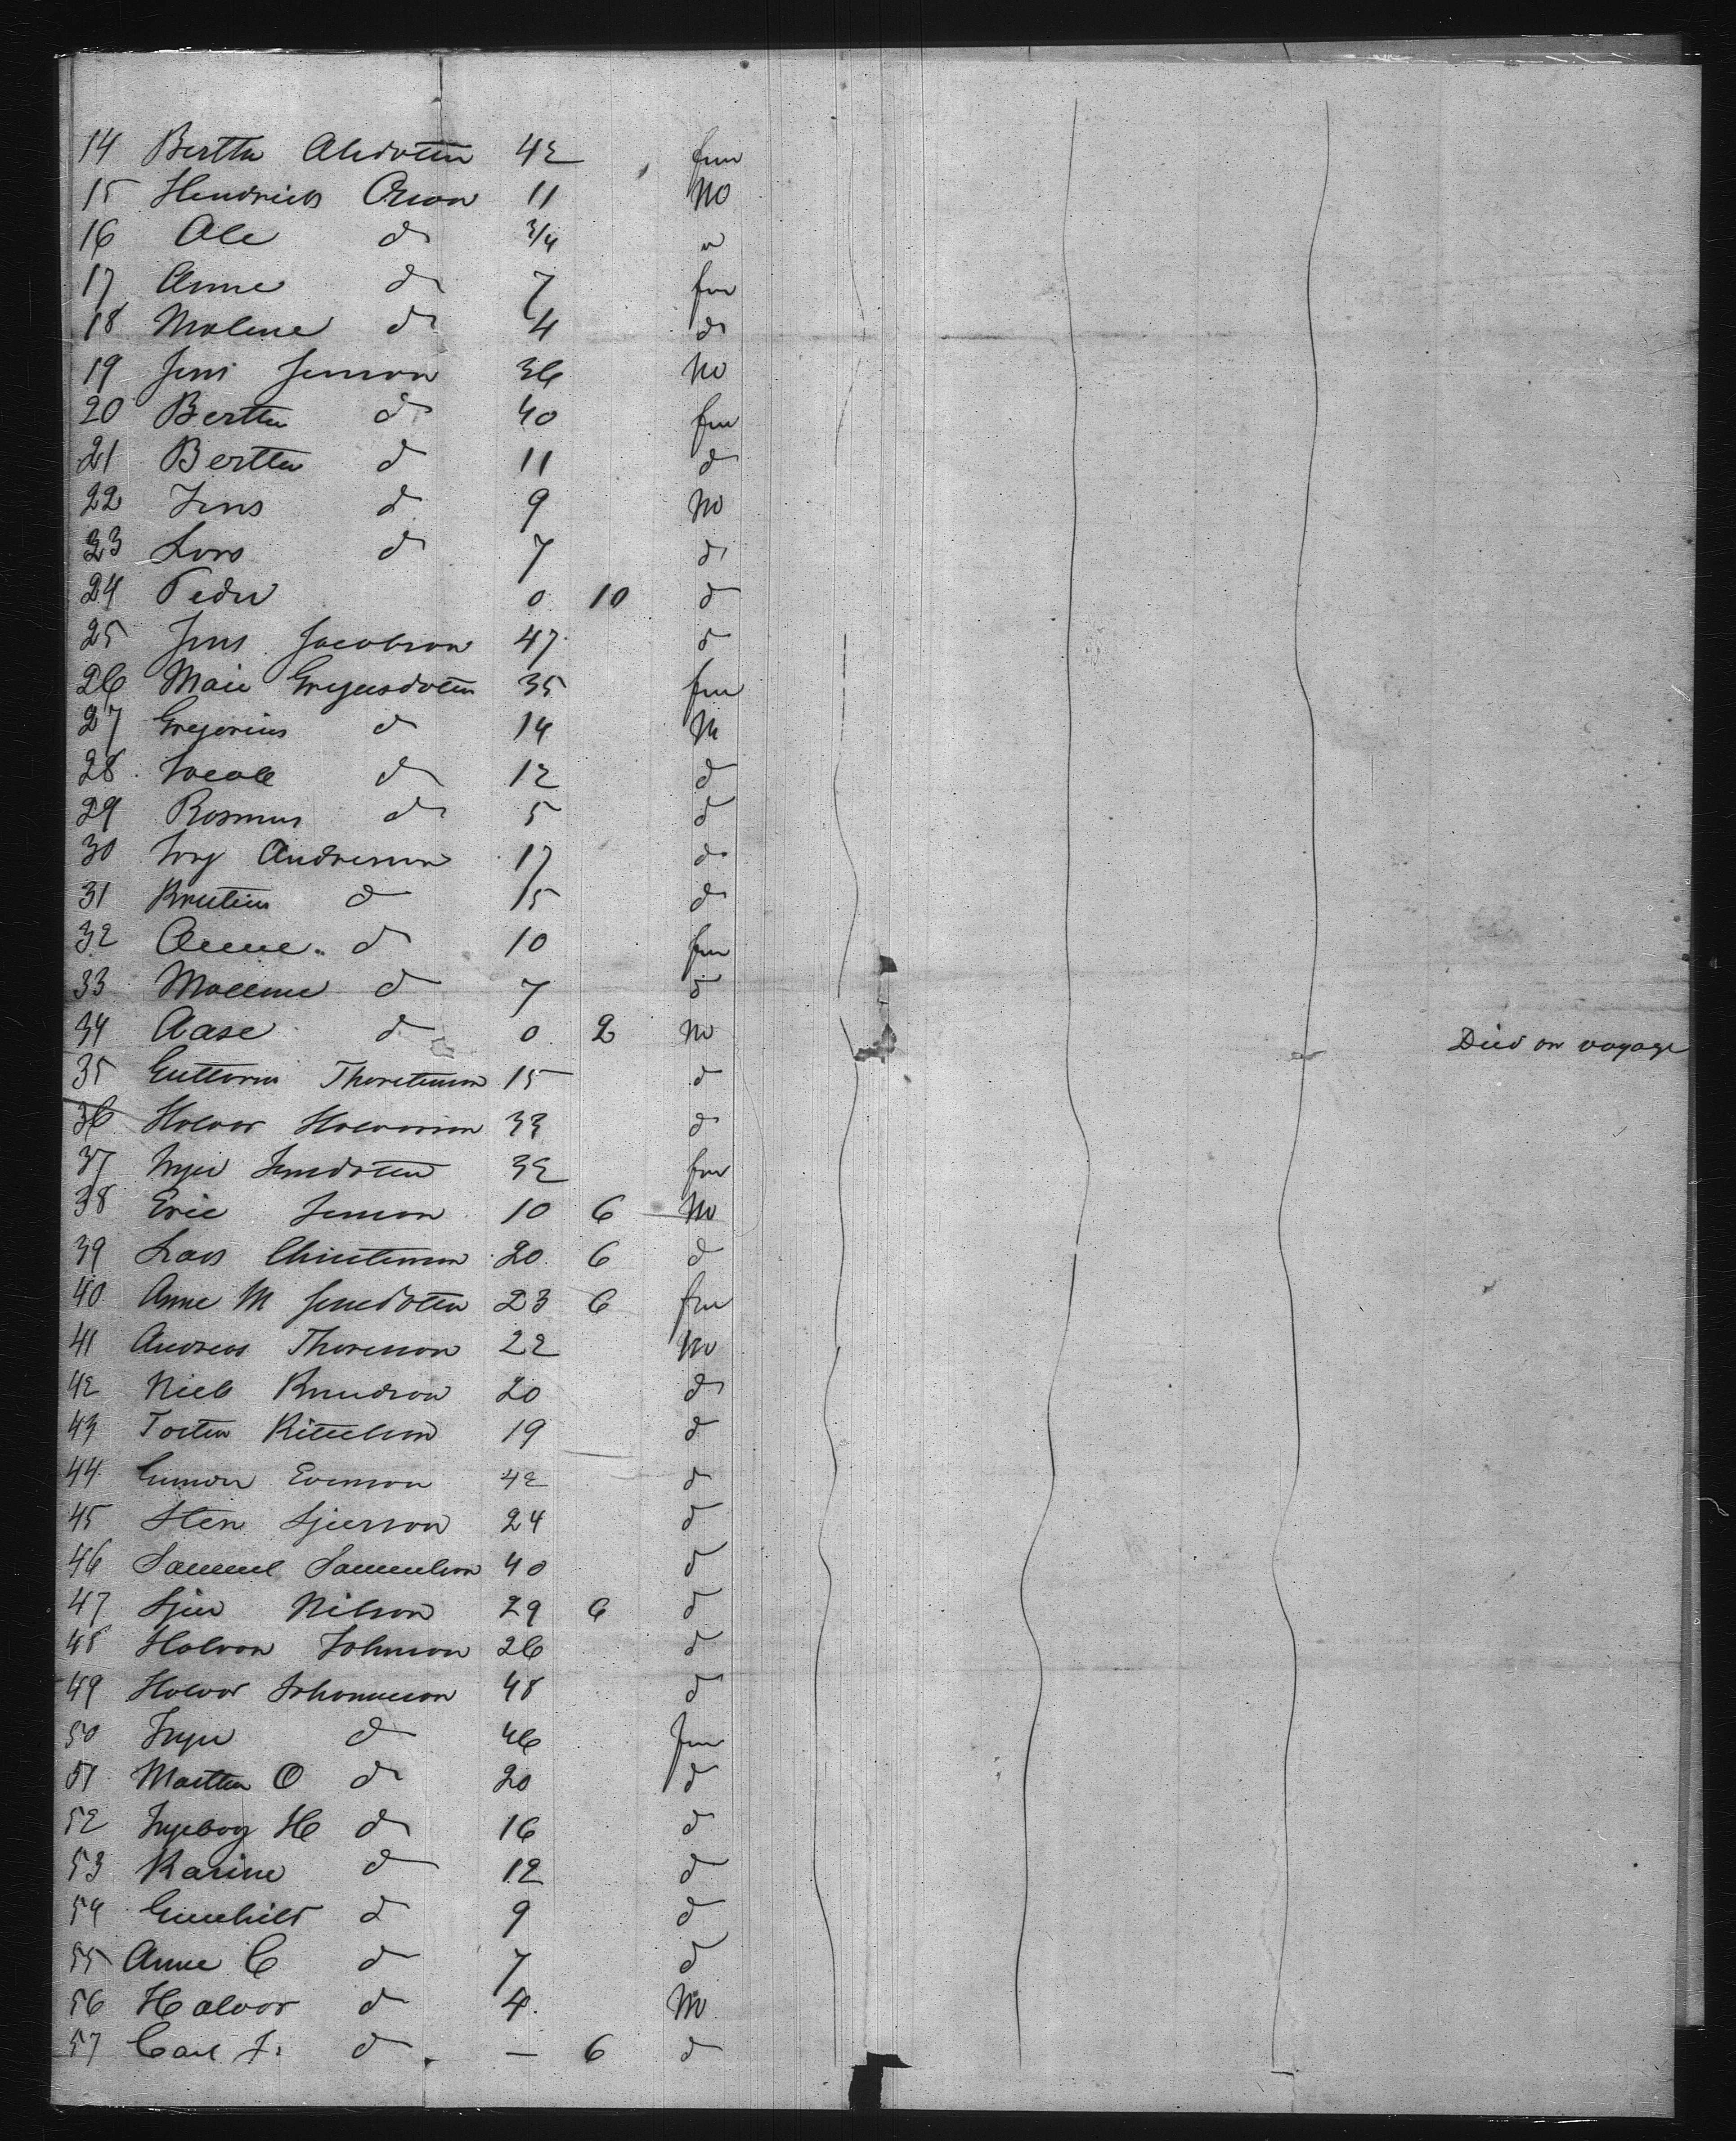 14 Bertha Olesdotten 42 fm
15 Hendrick Oleson 11 M
16 Ole do 3/4 "
17 Anne do 7 fm
18 Malene do 4 do
19 Jens Jenson 36 M
20 Bertha do 40 fm
21 Bertha do 11 do
22 Jens do 9 M
23 Lars do 7 do
24 Peder 0 10 do
25 Jens Jacobson 47 do
26 Marie 35 fm
27 Gregorius do 14 M
28 Jacob do 12 do
29 Rasmus do 5 do
30 Andreson 17 do
31 do 15 do
32 Anne do 10 fm
33 Mallene do 7 do
34 Aase do 0 2 M Died on voyage
35 Guttorm 15 do
36 Halvor Halvorson 33 do
37 Inger Jensdotten 32 fm
38 Eric Jenson 10 6 M
39 Lars Christenson 20 6 do
40 Anne M Jensdotten 23 6 fm
41 Andreas Thoreson 22 M
42 Niels Knudson 20 do
43 Kittelson 19 do
44 Gunder Evenson 42 do
45 Sten 24 do
46 Samuel Samuelson 40 do
47 Nilson 29 6 do
48 Halvor Johnson 26 do
49 Halvor Johanneson 48 do
50 Inger do 46 fm
51 Martha O do 20 do
52 Ingeborg H do 16 do
53 Karine do 12 do
54 Gunhild do 9 do
55 Anne C do 7 do
56 Halvor do 4 M
57 Carl J. do — 6 do